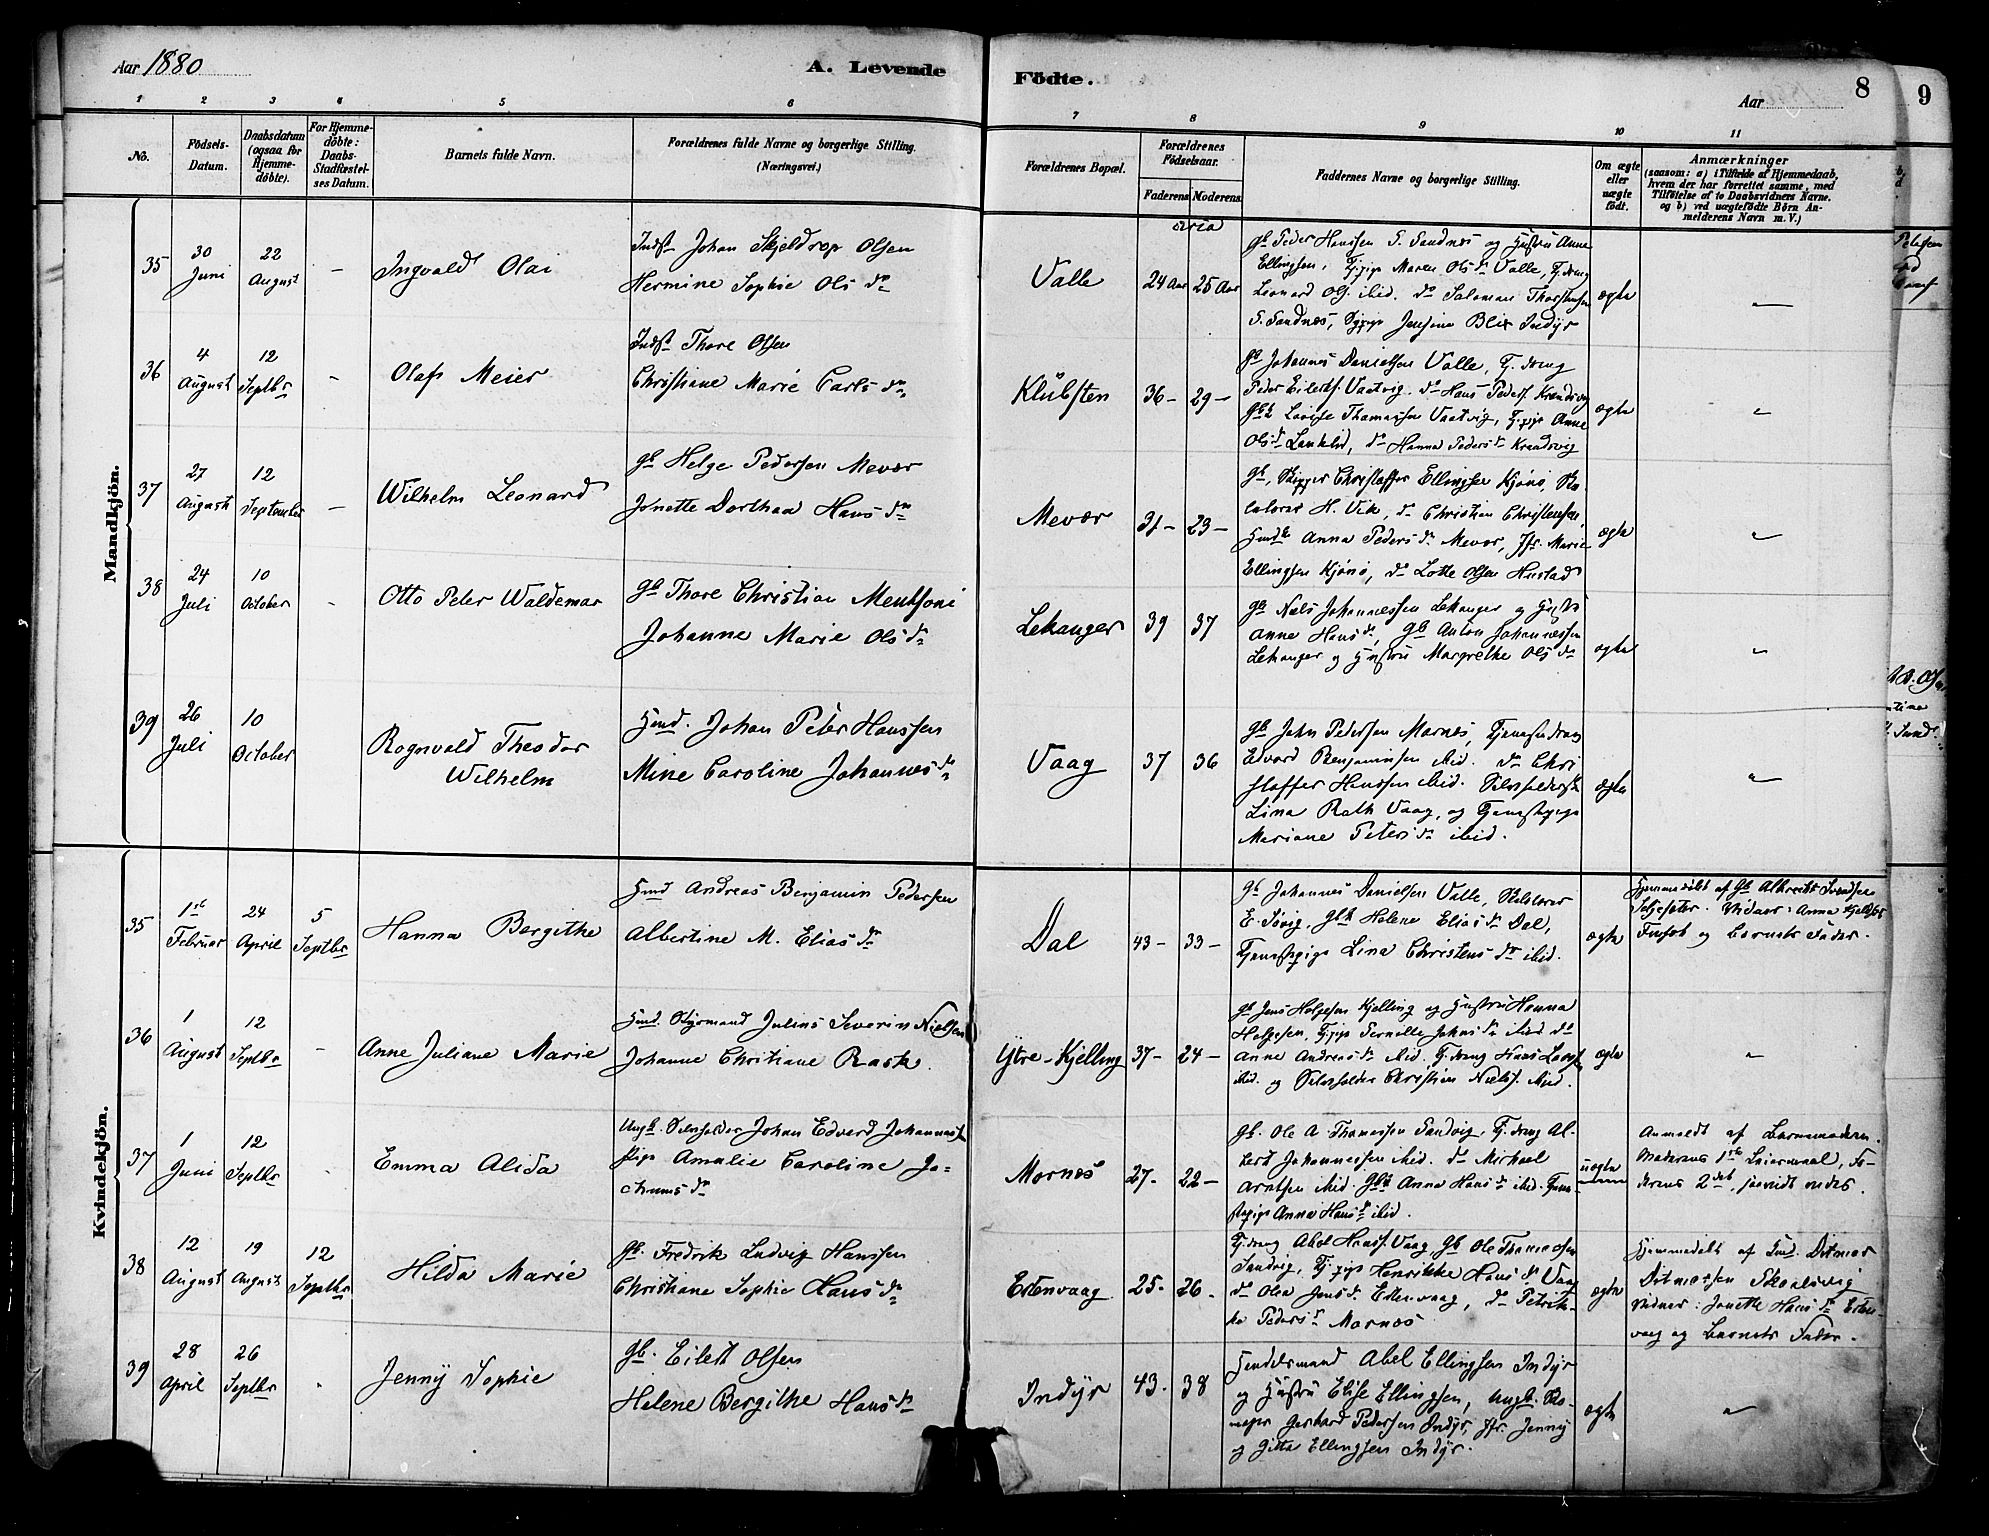 Aar 1880
A. Levende
Födte.
Aar
8
9
1 2 3 4 5 6 7 8 9 10 11
No.
Födsels-
Datum.
Daabsdatum
(ogsaa for
Hjemme-
döbte).
For Hjemme-
döbte:
Daabs-
Stadfæstel-
ses Datum.
Barnets fulde Navn.
Forældrenes fulde Navne og borgerlige Stilling.
(Næringsvei.)
Forældrenes Bopæl.
Forældrenes
Födselsaar.
Faderens Moderens
Faddernes Navne og borgerlige Stilling.
Om ægte
eller
uægte
födt.
Anmærkninger
(saasom: a) i Tilfælde af Hjemmedaab,
hvem der har forrettet samme, med
Tilföielse af to Daabsvidners Navne.
og b) ved uægtefödte Börn An-
melderens Navn m. V.)
Mandkjön.
circa
35
30
Juni
22
August
-
Ingvald Olai
Indst Johan Skjeldrop Olsen
Hermine Sophie Ols dr
Valle
24 Aar
25 Aar
gb Peder Hansen S. Sandnes og Hustru Anne
Ellingsen, Tj.pige Maren Ols dr Valle, Tj.dreng
Leonard Ols. ibid. do Salomon Thorstensen
S. Sandnes, Pige Jensine Blix Indyr
ægte
"
36
4
August
12
Septbr
-
Olaf Meier
Indst Thore Olsen
Christiane Marie Carls dr
Klubsten
36 -
29 -
gb Johannes Danielsen Valle, Tj.dreng
Peder Eilerts. Vaatvig. do Hans Peders. Krandsvig
Gbk Lovise Thomassen Vaatvig, Tj.pige Anne
Ols dr Lanklid, do Hanna Peders dr Krandsvig
ægte
"
37
27
August
12
September
-
Wilhelm Leonard
gb Helge Pedersen Mevær
Jonette Dorthea Hans dr
Mevær
31 -
23 -
gb, Skipper Christoffer Ellingsen Kjönö,
H. Vik, do Christian Christensen,
Anna Peders dr Mevær, Jfr. Marie
Ellingsen Kjönö, do Lotte Olsen Hustad
ægte
"
38
24
Juli
10
October
-
Otto Peter Waldemar
gb Thore Christian Mentsoni
Johanne Marie Ols dr
Lekanger
39
37
gb Niels Johannessen Lekanger og Hustru
Anne Hans dr, gb Anton Johannessen
Lekanger og Hustru Margrethe Ols dr
ægte
"
39
26
Juli
10
October
Rognvald Theodor
Wilhelm
Hmd. Johan Peter Hanssen
Mine Caroline Johannes dr
Vaag
37
36
gb John Pedersen Mornes, Tjenestdreng
Edvard Benjaminsen ibid. do Chri
stoffer Hanssen ibid.
Lina Rath Vaag, og Tjenestpige
Mariane Peters dr ibid.
ægte
"
Kvindekjön.
35
1ste
Februar
24
April
5
Septbr
Hanna Bergithe
Hmd Andreas Benjamin Pedersen
Albertine M. Elias dr
Dal
43 -
33 -
gb Johannes Danielsen Valle,
E. Sövig, Gbk Helene Elias dr Dal,
Tjenestpige Lina Christens dr ibid.
ægte
Hjemmedöbt af Gb Albrecht Svendsen
Vidner: Anna
og Barnets Fader.
36
1
August
12
Septbr
-
Anne Juliane Marie
Hmd. Styrmand Julius Severin Nielsen
Johanne Christiane Rask.
Ytre-Kjelling
37 -
24 -
gb Jens Holgesen Kjelling og Hustru Hanna
Holgesen, Tj.pige Pernille Johns dr ibid do
Anne Andreas dr ibid. Tj.dreng Hans
ibid. og Selvholder Christian Niels. ibid.
ægte
"
37
1
Juni
12
Septbr
-
Emma Alida
Ungk. Selvholder Johan Edvard Johannessen
Pige Amalie Caroline Jo-
chums dr
Mornes
27 -
22 -
gb. Ole A. Thomassen Sandvig, Tj.dreng Al-
bert Johannessen ibid. do Michael
Arntsen ibid. Gbk Anna Hans dr ibid. Tjene-
stepige Anna Hans dr ibid.
uægte
Anmeldt af Barnemoderen.
Moderens 1ste Leiermaal, Fa-
derens 2det, saavidt vides.
38
12
August
19
August
12
Septbr
Hilda Marie
Gb. Fredrik Ludvig Hanssen
Christiane Sophie Hans dr
Estenvaag
25 -
26 -
Tj.dreng Abel Hanss. Vaag, Gb Ole Thomassen
Sandvig, Tj.pige Henrikke Hans dr Vaag
do Olea Jens dr Estenvaag, do Petrik-
ke Peders dr Mornes
ægte
Hjemmedöbt af Hmd. Ditmar
Ditmarsen Skaalsvig
Vidner: Jonette Hans dr Esten-
vaag og Barnets Fader.
39
28
April
26
Septbr
-
Jenny Sophie
gb. Eilert Olsen
Helene Bergithe Hans dr
Indyr
43 -
38
Handelsmand Abel Ellingsen Indyr
og Hustru Elise Ellingsen, Ungk.
Gerhard Pedersen Indyr, Jfr. Jenny
og Gitta Ellingsen Indyr.
ægte
"